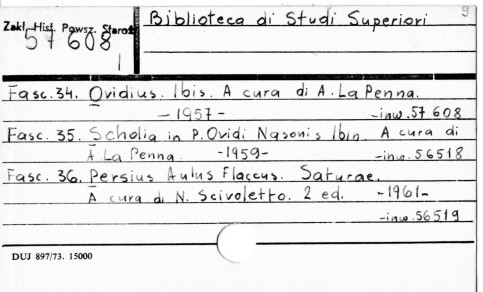 Zakł. Hist. Powsz. Staroż.
57 608
1
Biblioteca di Studi Superiori
9
Fasc. 34. Ovidius. Ibis. A cura di A. La Penna.
- 1957 - - inw. 57 608
Fasc. 35. Scholia in P. Ovidi Nasonis Ibin. A cura di
A La Penna. - 1959 - - inw. 56518
Fasc. 36. Persius Aulus Flaccus. Saturae.
A cura di N. Scivoletto. 2 ed. - 1961 -
- inw. 56519
DUJ 897/73. 15000